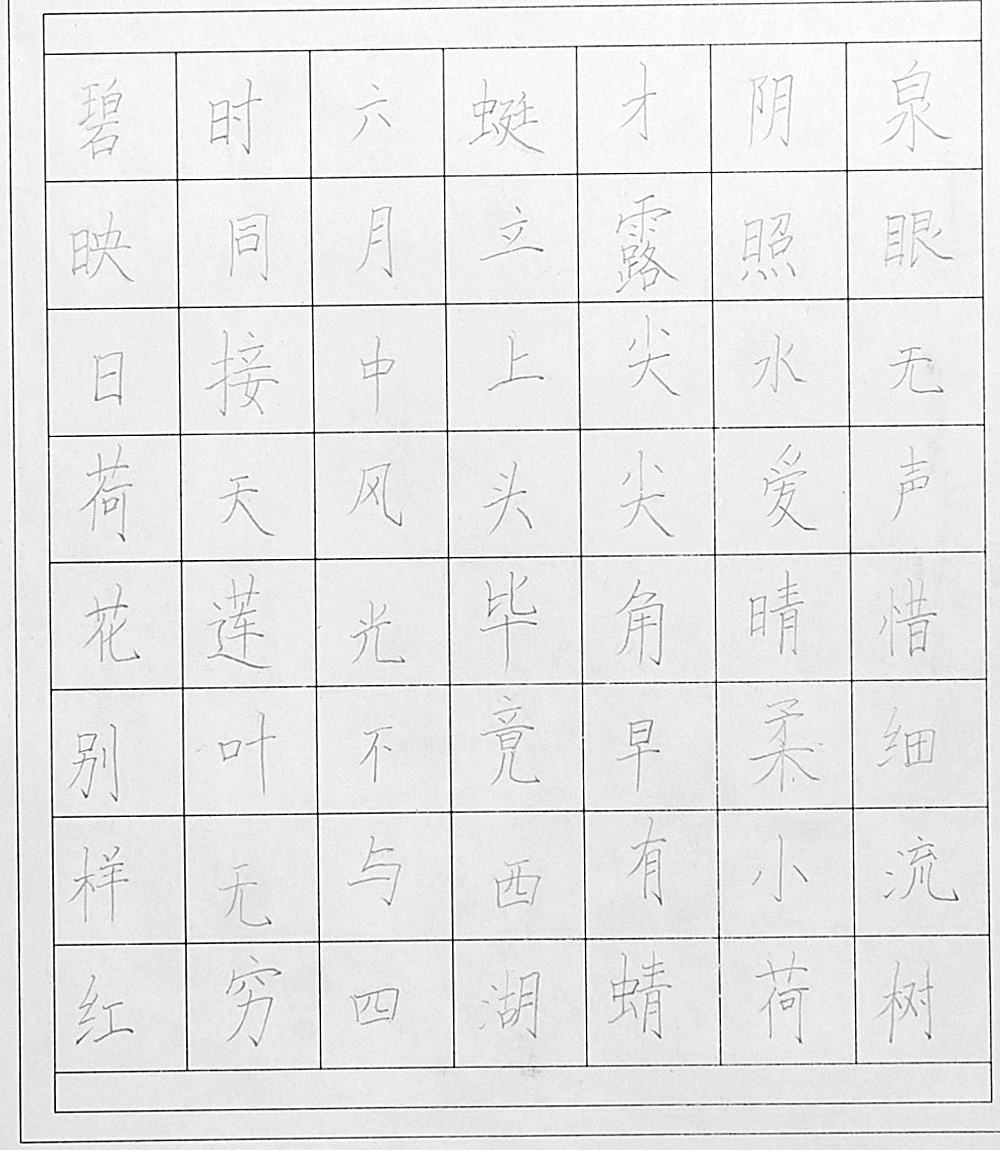 泉眼无声惜细流树
阴照水爱晴柔小荷
才露尖尖角早有蜻
蜓立上头毕竟西湖
六月中风光不与四
时同接天莲叶无穷
碧映日荷花别样红